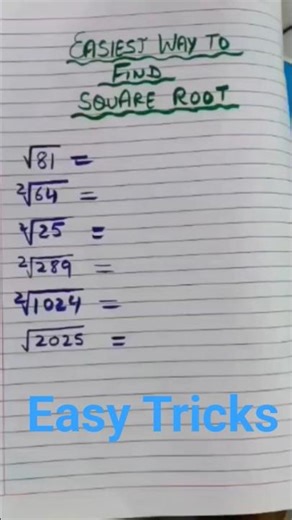 EASIEST WAY TO
FIND
SQUARE ROOT
√81 =
²√64 =
²√25 =
²√289 =
²√1024 =
√2025 =
Easy Tricks